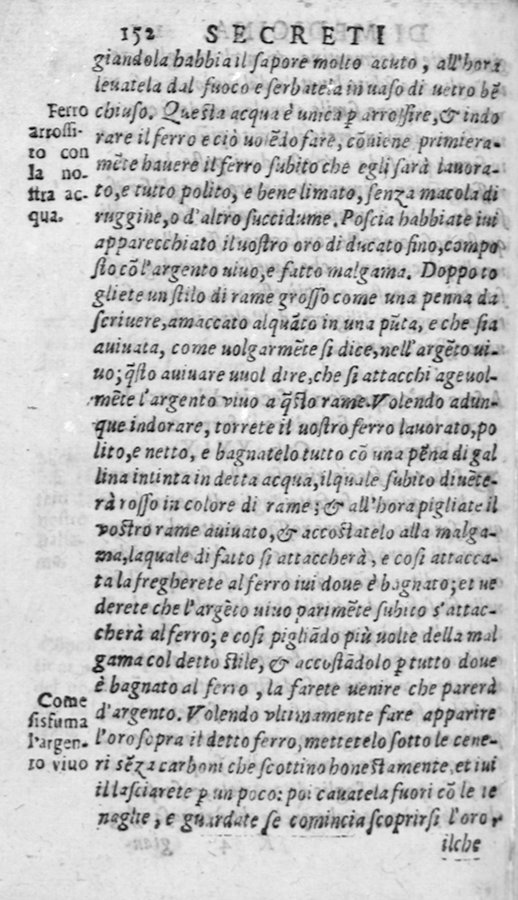 152 SECRETI
giandola habbia il sapore molto acuto, all'hora
leuatela dal fuoco e serbatela in uaso di uetro bē
chiuso. Questa acqua è unica ꝑ arrossire, & indo
rare il ferro e ciò uolēdo fare, cōuiene primiera-
mēte hauere il ferro subito che egli sarà lauora-
to, e tutto polito, e bene limato, senza macola di
ruggine, o d'altro succidume. Poscia habbiate iui
apparecchiato il uostro oro di ducato fino, compo
sto cō l'argento uiuo, e fatto malgama. Doppo to
gliete un stilo di rame grosso come una penna da
scriuere, amaccato alquāto in una pūta, e che sia
auiuata, come uolgarmēte si dice, nell'argēto ui-
uo; q̄sto auiuare uuol dire, che si attacchi ageuol-
mēte l'argento viuo a q̄sto rame. Volendo adun-
que indorare, torrete il uostro ferro lauorato, po
lito, e netto, e bagnatelo tutto cō una pēna di gal
lina intinta in detta acqua, ilquale subito diuēte-
rà rosso in colore di rame; & all'hora pigliate il
vostro rame auiuato, & accostatelo alla malga-
ma, laquale di fatto si attaccherà, e cosi attacca-
ta la fregherete al ferro iui doue è bagnato; et ue
derete che l'argēto uiuo parimēte subito s'attac-
cherà al ferro; e cosi pigliādo più uolte della mal
gama col detto stile, & accostādolo ꝑ tutto doue
è bagnato al ferro, la farete uenire che parerà
d'argento. Volendo vltimamente fare apparire
l'oro sopra il detto ferro, mettetelo sotto le cene-
ri sēza carboni che scottino honestamente, et iui
il lasciarete ꝑ un poco: poi cauatela fuori cō le te
naglie, e guardate se comincia scoprirsi l'oro,
ilche
Ferro
arrossi-
to con
la no-
stra ac-
qua.
Come
sisfuma
l'argen-
to viuo